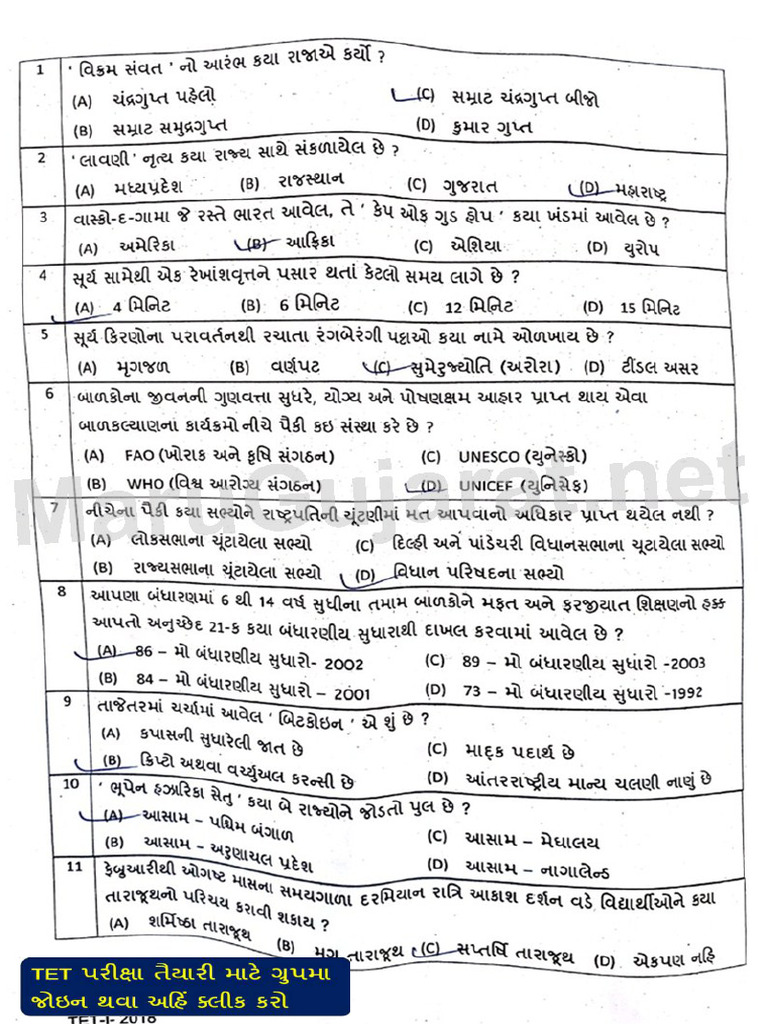 1 ' વિક્રમ સંવત ' નો આરંભ કયા રાજાએ કર્યો ?
(A) ચંદ્રગુપ્ત પહેલો (C) સમ્રાટ ચંદ્રગુપ્ત બીજો
(B) સમ્રાટ સમુદ્રગુપ્ત (D) કુમાર ગુપ્ત
2 ' લાવણી ' નૃત્ય કયા રાજ્ય સાથે સંકળાયેલ છે ?
(A) મધ્યપ્રદેશ (B) રાજસ્થાન (C) ગુજરાત (D) મહારાષ્ટ્ર
3 વાસ્કો-દ-ગામા જે રસ્તે ભારત આવેલ, તે ' કેપ ઓફ ગુડ હોપ ' કયા ખંડમાં આવેલ છે ?
(A) અમેરિકા (B) આફ્રિકા (C) એશિયા (D) યુરોપ
4 સૂર્ય સામેથી એક રેખાંશવૃત્તને પસાર થતાં કેટલો સમય લાગે છે ?
(A) 4 મિનિટ (B) 6 મિનિટ (C) 12 મિનિટ (D) 15 મિનિટ
5 સૂર્ય કિરણોના પરાવર્તનથી રચાતા રંગબેરંગી પટ્ટાઓ કયા નામે ઓળખાય છે ?
(A) મૃગજળ (B) વર્ણપટ (C) સુમેરુજ્યોતિ (અરોરા) (D) ટીંડલ અસર
6 બાળકોના જીવનની ગુણવત્તા સુધરે, યોગ્ય અને પોષણક્ષમ આહાર પ્રાપ્ત થાય એવા
બાળકલ્યાણનાં કાર્યક્રમો નીચે પૈકી કઇ સંસ્થા કરે છે ?
(A) FAO (ખોરાક અને કૃષિ સંગઠન) (C) UNESCO (યુનેસ્કો)
(B) WHO (વિશ્વ આરોગ્ય સંગઠન) (D) UNICEF (યુનિસેફ)
MaruGujarat.net
7 નીચેના પૈકી કયા સભ્યોને રાષ્ટ્રપતિની ચૂંટણીમાં મત આપવાનો અધિકાર પ્રાપ્ત થયેલ નથી ?
(A) લોકસભાના ચૂંટાયેલા સભ્યો (C) દિલ્હી અને પાંડેચરી વિધાનસભાના ચૂટાયેલા સભ્યો
(B) રાજ્યસભાના ચૂંટાયેલા સભ્યો (D) વિધાન પરિષદના સભ્યો
8 આપણા બંધારણમાં 6 થી 14 વર્ષ સુધીના તમામ બાળકોને મફત અને ફરજીયાત શિક્ષણનો હક્ક
આપતો અનુચ્છેદ 21-ક કયા બંધારણીય સુધારાથી દાખલ કરવામાં આવેલ છે ?
(A) 86 – મો બંધારણીય સુધારો- 2002 (C) 89 – મો બંધારણીય સુધારો -2003
(B) 84 – મો બંધારણીય સુધારો – 2001 (D) 73 – મો બંધારણીય સુધારો -1992
9 તાજેતરમાં ચર્ચામાં આવેલ ' બિટકોઇન ' એ શું છે ?
(A) કપાસની સુધારેલી જાત છે (C) માદક પદાર્થ છે
(B) ક્રિપ્ટો અથવા વર્ચ્યુઅલ કરન્સી છે (D) આંતરરાષ્ટ્રીય માન્ય ચલણી નાણું છે
10 ' ભૂપેન હઝારિકા સેતુ ' કયા બે રાજ્યોને જોડતો પુલ છે ?
(A) આસામ – પશ્ચિમ બંગાળ (C) આસામ – મેઘાલય
(B) આસામ – અરુણાચલ પ્રદેશ (D) આસામ – નાગાલેન્ડ
11 ફેબ્રુઆરીથી ઓગષ્ટ માસના સમયગાળા દરમિયાન રાત્રિ આકાશ દર્શન વડે વિદ્યાર્થીઓને કયા
તારાજૂથનો પરિચય કરાવી શકાય ?
(A) શર્મિષ્ઠા તારાજૂથ (B) મૃગ તારાજૂથ (C) સપ્તર્ષિ તારાજૂથ (D) એકપણ નહિ
TET પરીક્ષા તૈયારી માટે ગ્રુપમા
જોઇન થવા અહિં ક્લીક કરો
TET-I- 2018